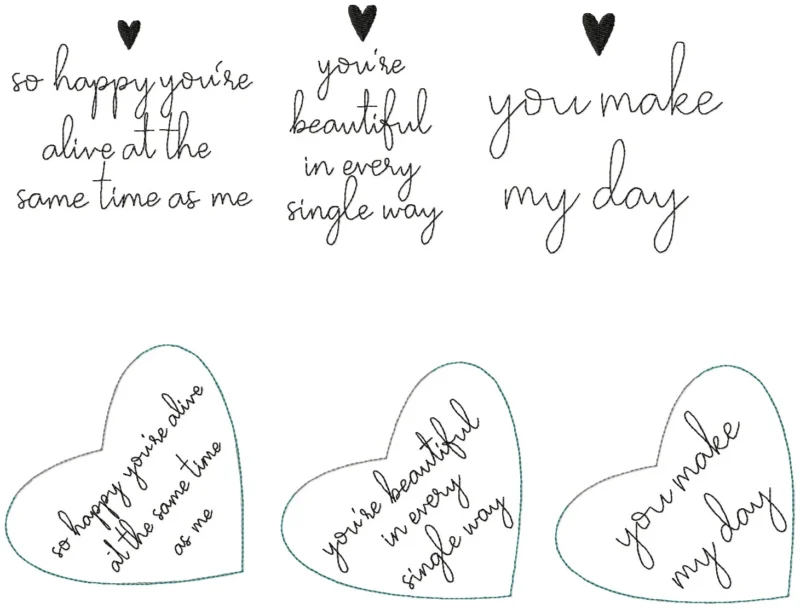 so happy you're
alive at the
same time as me
you're
beautiful
in every
single way
you make
my day
so happy you're alive
at the same time
as me
you're beautiful
in every
single way
you make
my day